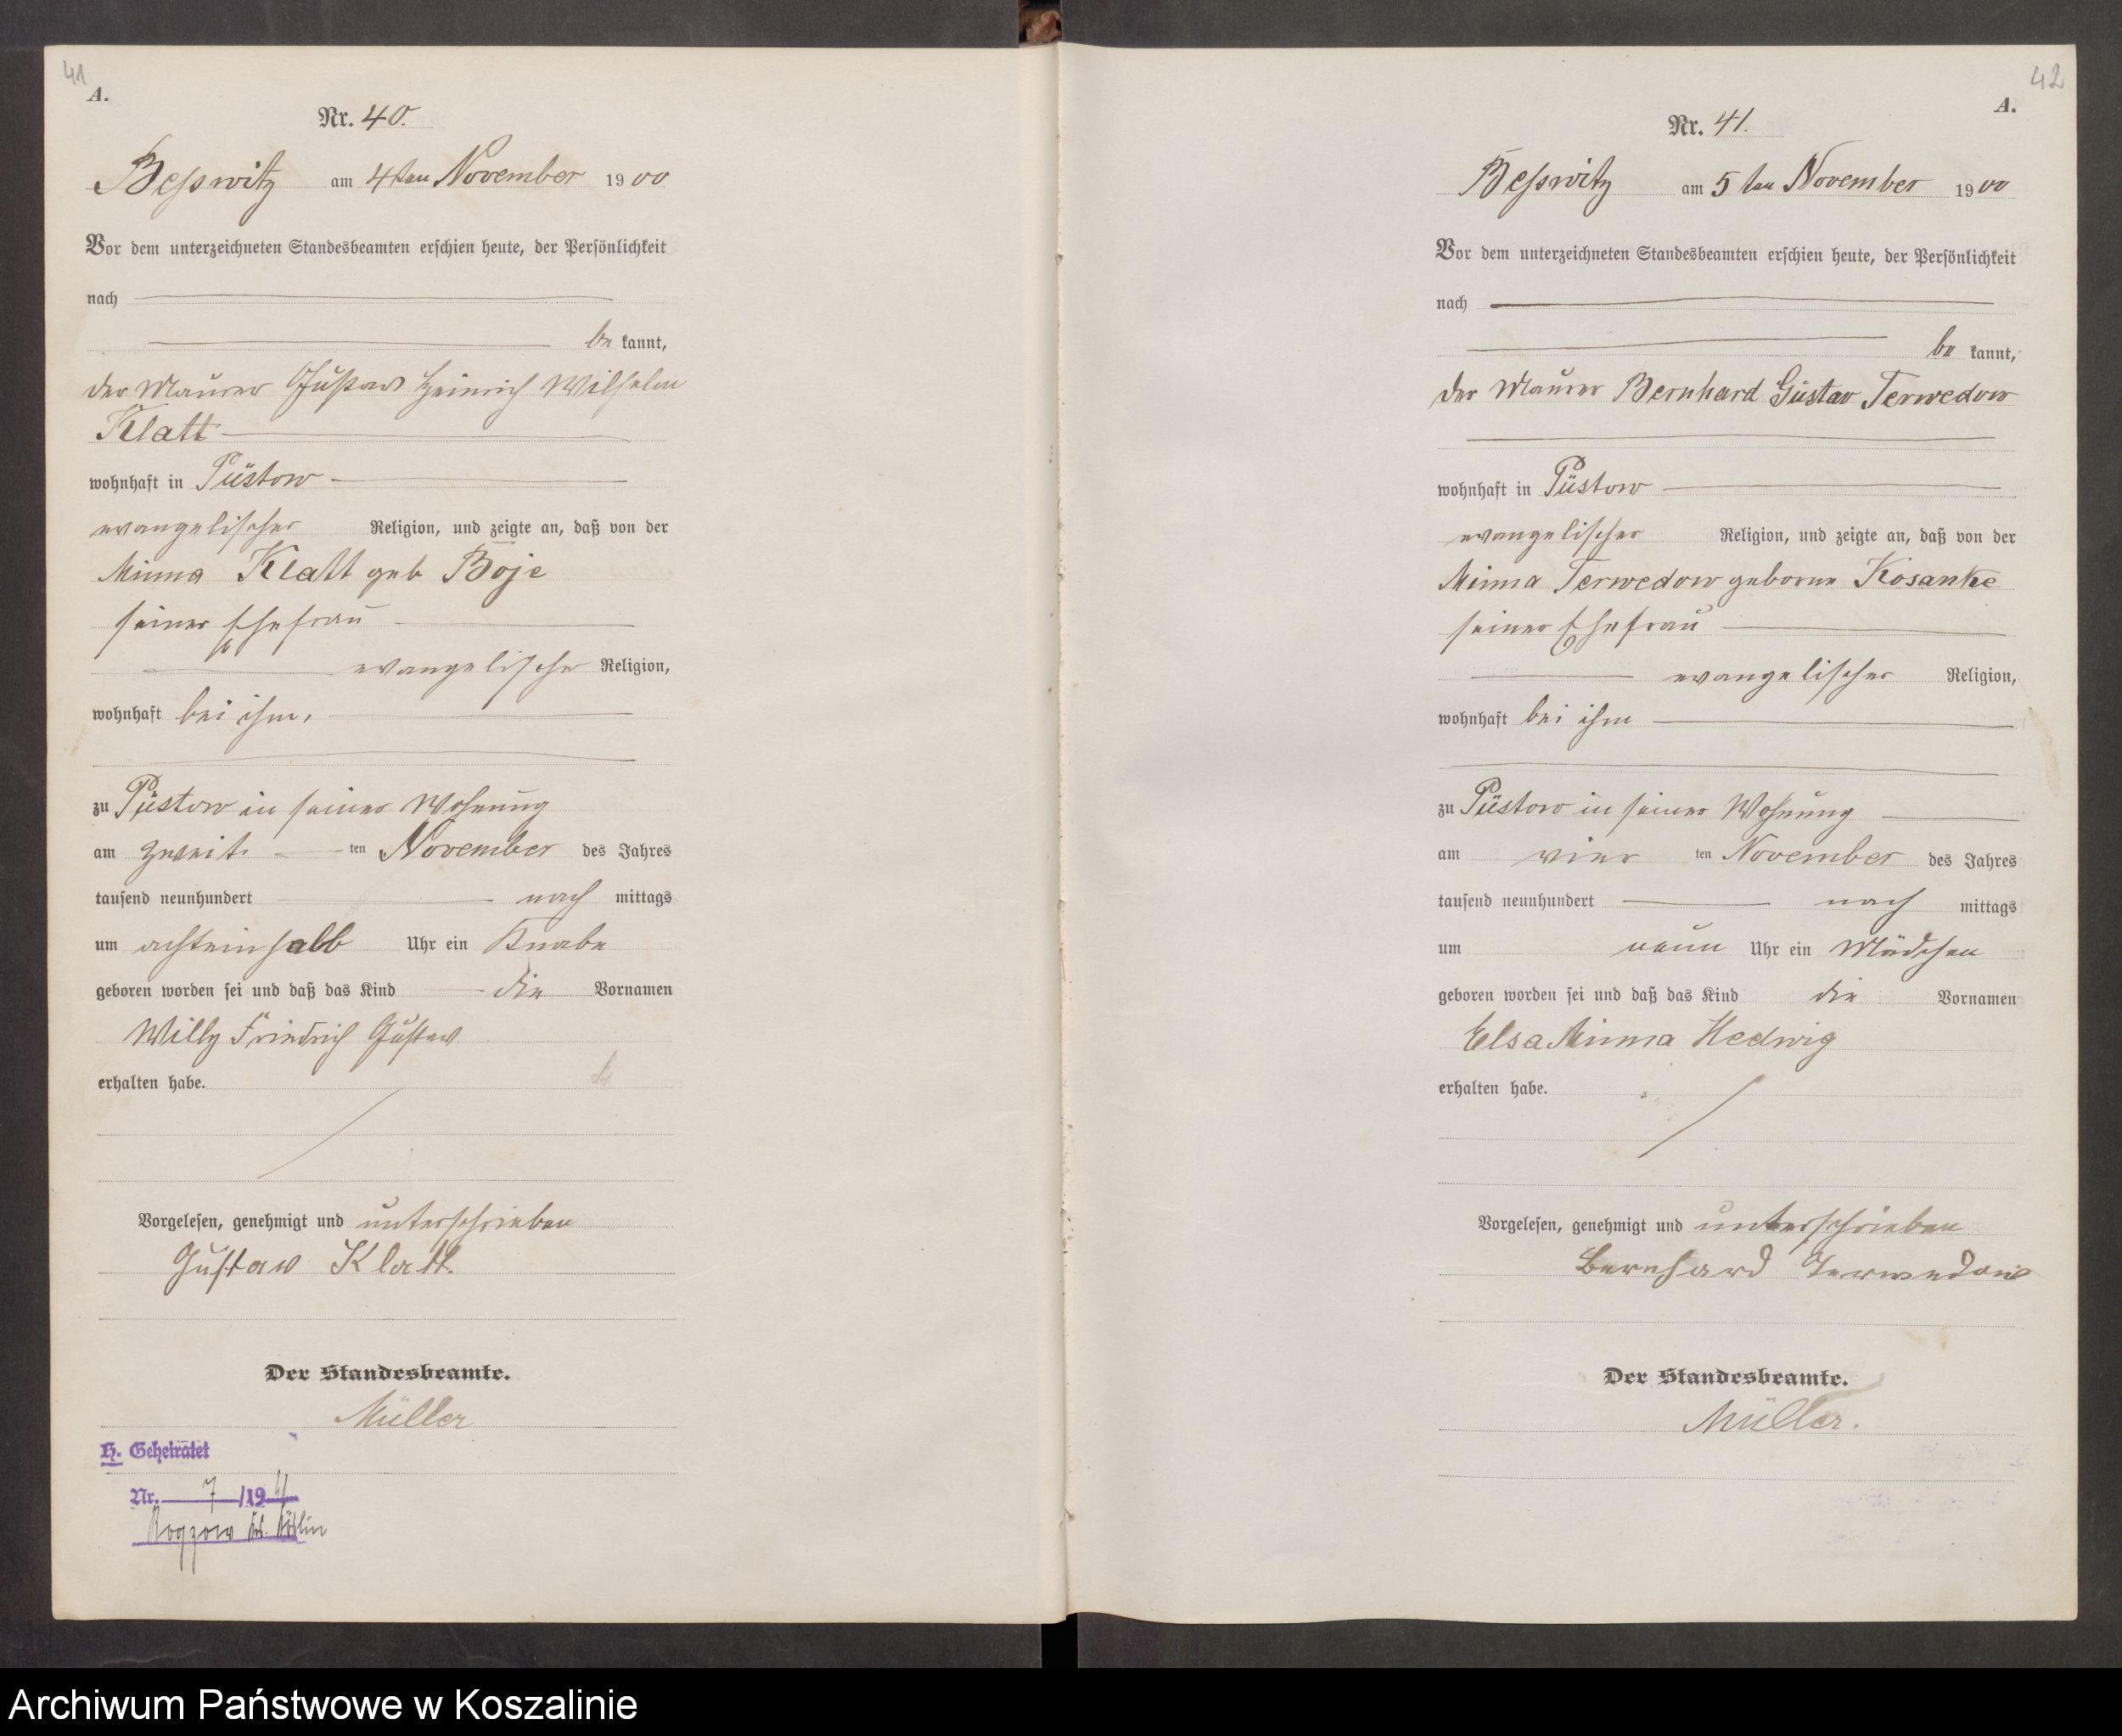 41
A.
Nr. 40.
Besswitz am 4ten November 1900
Vor dem unterzeichneten Standesbeamten erschien heute, der Persönlichkeit
nach
be kannt,
der Maurer Gustav Heinrich Wilhelm
Klatt
wohnhaft in Püstow
evangelischer Religion, und zeigte an, daß von der
Minna Klatt geb Boje
seiner Ehefrau
evangelische Religion,
wohnhaft bei ihm,
zu Püstow in seiner Wohnung
am zweit ten November des Jahres
tausend neunhundert nach mittags
um achteinhalb Uhr ein Knabe
geboren worden sei und daß das Kind die Vornamen
Willy Friedrich Gustav
erhalten habe.
Vorgelesen, genehmigt und unterschrieben
Gustav Klatt.
Der Standesbeamte.
Müller
H. Geheiratet
Nr. 7 /1941
Rogzow Krs. Köslin
42
A.
Nr. 41.
Besswitz am 5ten November 1900
Vor dem unterzeichneten Standesbeamten erschien heute, der Persönlichkeit
nach
be kannt,
der Maurer Bernhard Gustav Terwedow
wohnhaft in Püstow
evangelischer Religion, und zeigte an, daß von der
Minna Terwedow geborne Kosanke
seiner Ehefrau
evangelischer Religion,
wohnhaft bei ihm
zu Püstow in seiner Wohnung
am vier ten November des Jahres
tausend neunhundert nach mittags
um neun Uhr ein Mädchen
geboren worden sei und daß das Kind die Vornamen
Elsa Minna Hedwig
erhalten habe.
Vorgelesen, genehmigt und unterschrieben
Bernhard Terwedow
Der Standesbeamte.
Müller.
Archiwum Państwowe w Koszalinie